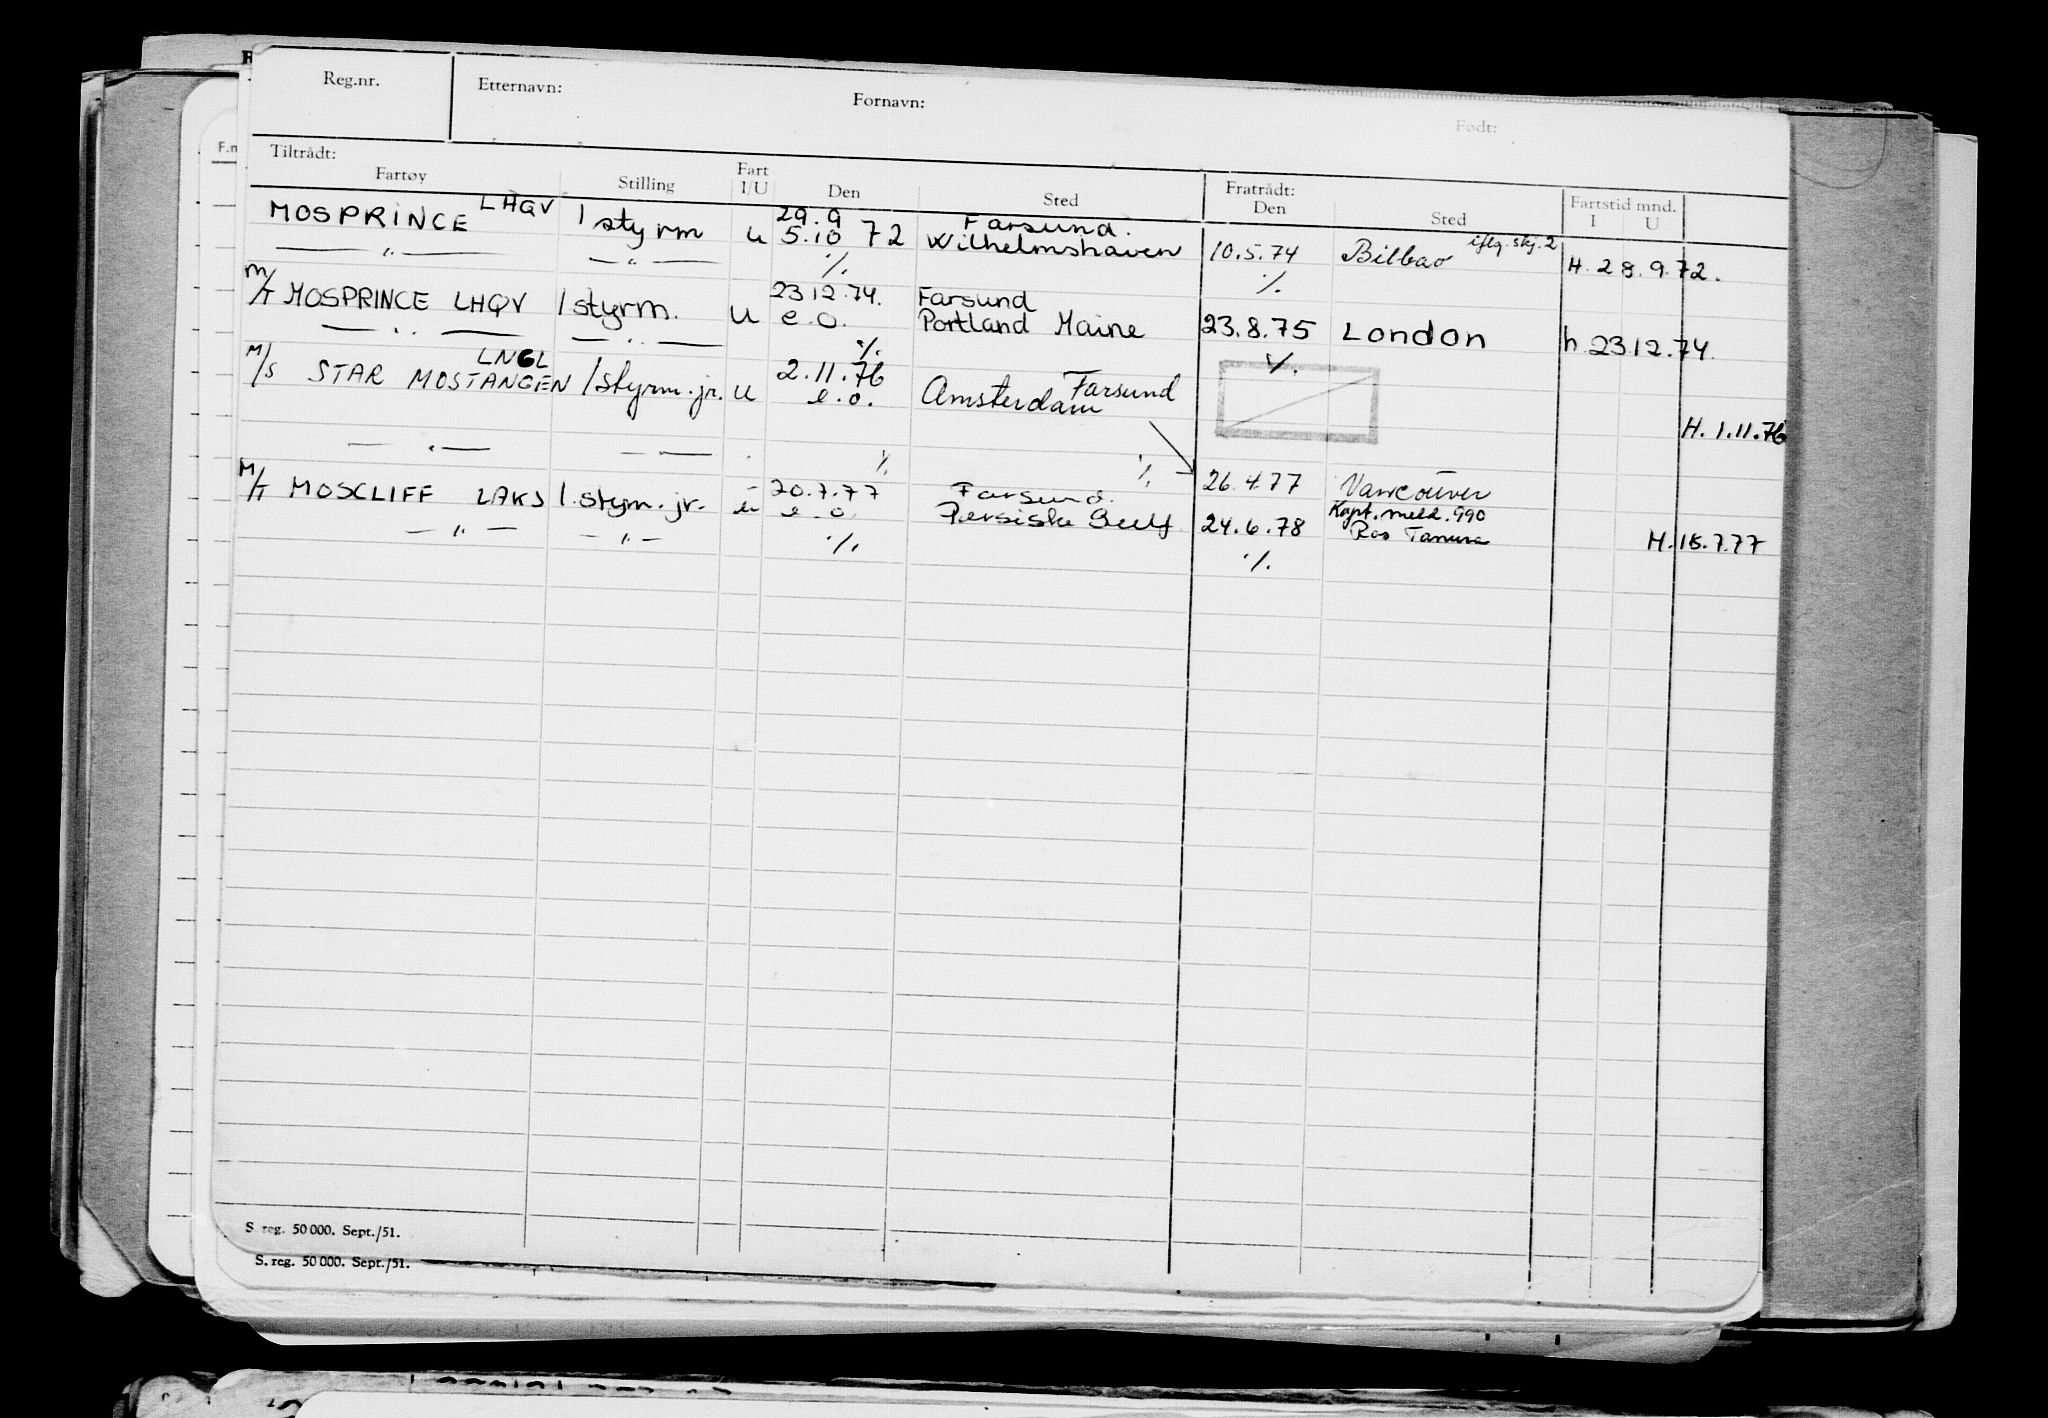 Reg.nr. Etternavn: Fornavn: Født:
Tiltrådt: Fratrådt:
Fartøy Stilling Fart I/U Den Sted Den Sted Fartstid mnd. I U
MOSPRINCE LHQV 1 styrm u 29.9 Farsund.
5.10 72 Wilhelmshaven 10.5.74 Bilbao iflg. skj. 2 H. 28.9.72.
— " — — " — ./. ./.
M/T MOSPRINCE LHQV 1 styrm. u 23 12.74. Farsund
e.o. Portland Maine 23.8.75 London h 23 12.74.
— " — — " — ./. ./.
M/S STAR MOSTANGEN LNGL 1 styrm. jr. u 2.11.76 Farsund
e.o. Amsterdam H. 1.11.76
— " — — " — ./. ./. 26.4.77 Vancouver
M/T MOSCLIFF LAKS 1. stym. jr. u 20.7.77 Farsund.
e.o. Persiske Gulf 24.6.78 Kapt. meld. 990
Ras Tanura H. 18.7.77
— " — — " — ./. ./.
S. reg. 50 000. Sept./51.
S. reg. 50 000. Sept./51.